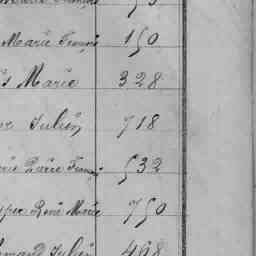 Marie François 150
Marie 328
Julien 718
Marie Pierre François 532
René Marie 750
Armand Julien 468